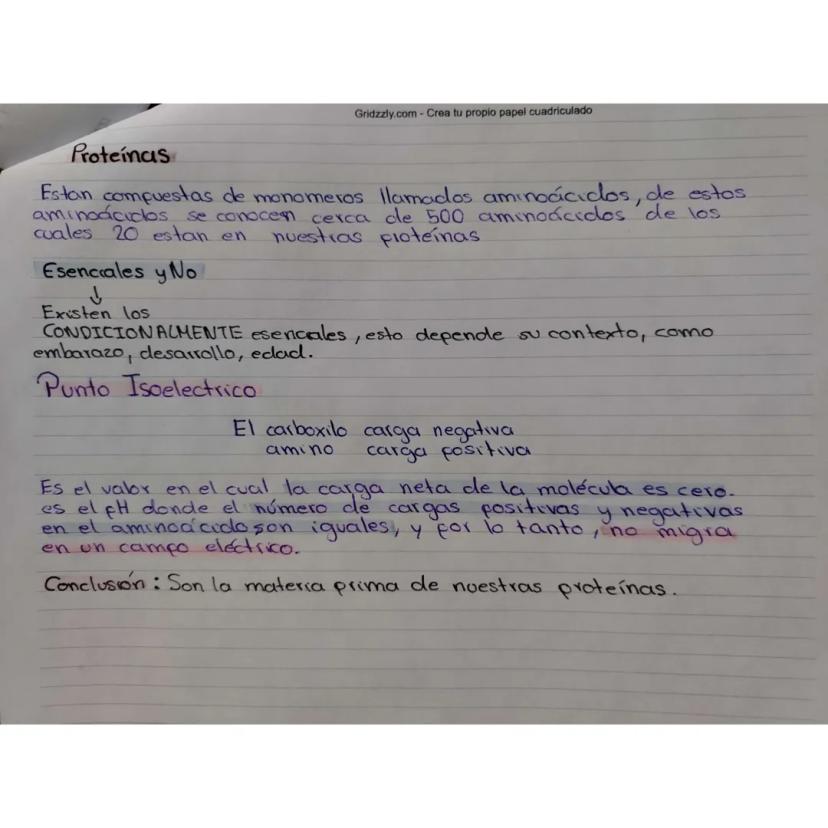 Gridzzly.com - Crea tu propio papel cuadriculado
Proteínas
Estan compuestas de monomeros llamados aminoácidos, de estos
aminoácidos se conocen cerca de 500 aminoácidos de los
cuales 20 estan en nuestras proteínas
Esenciales y No
↓
Existen los
CONDICIONALMENTE esenciales, esto depende su contexto, como
embarazo, desarrollo, edad.
Punto Isoelectrico
El carboxilo carga negativa
amino carga positiva
Es el valor en el cual la carga neta de la molécula es cero.
es el pH donde el número de cargas positivas y negativas
en el aminoácido son iguales, y por lo tanto, no migra
en un campo eléctrico.
Conclusión: Son la materia prima de nuestras proteínas.